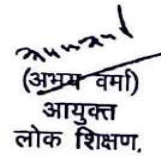 (अभय वर्मा)
आयुक्त
लोक शिक्षण,